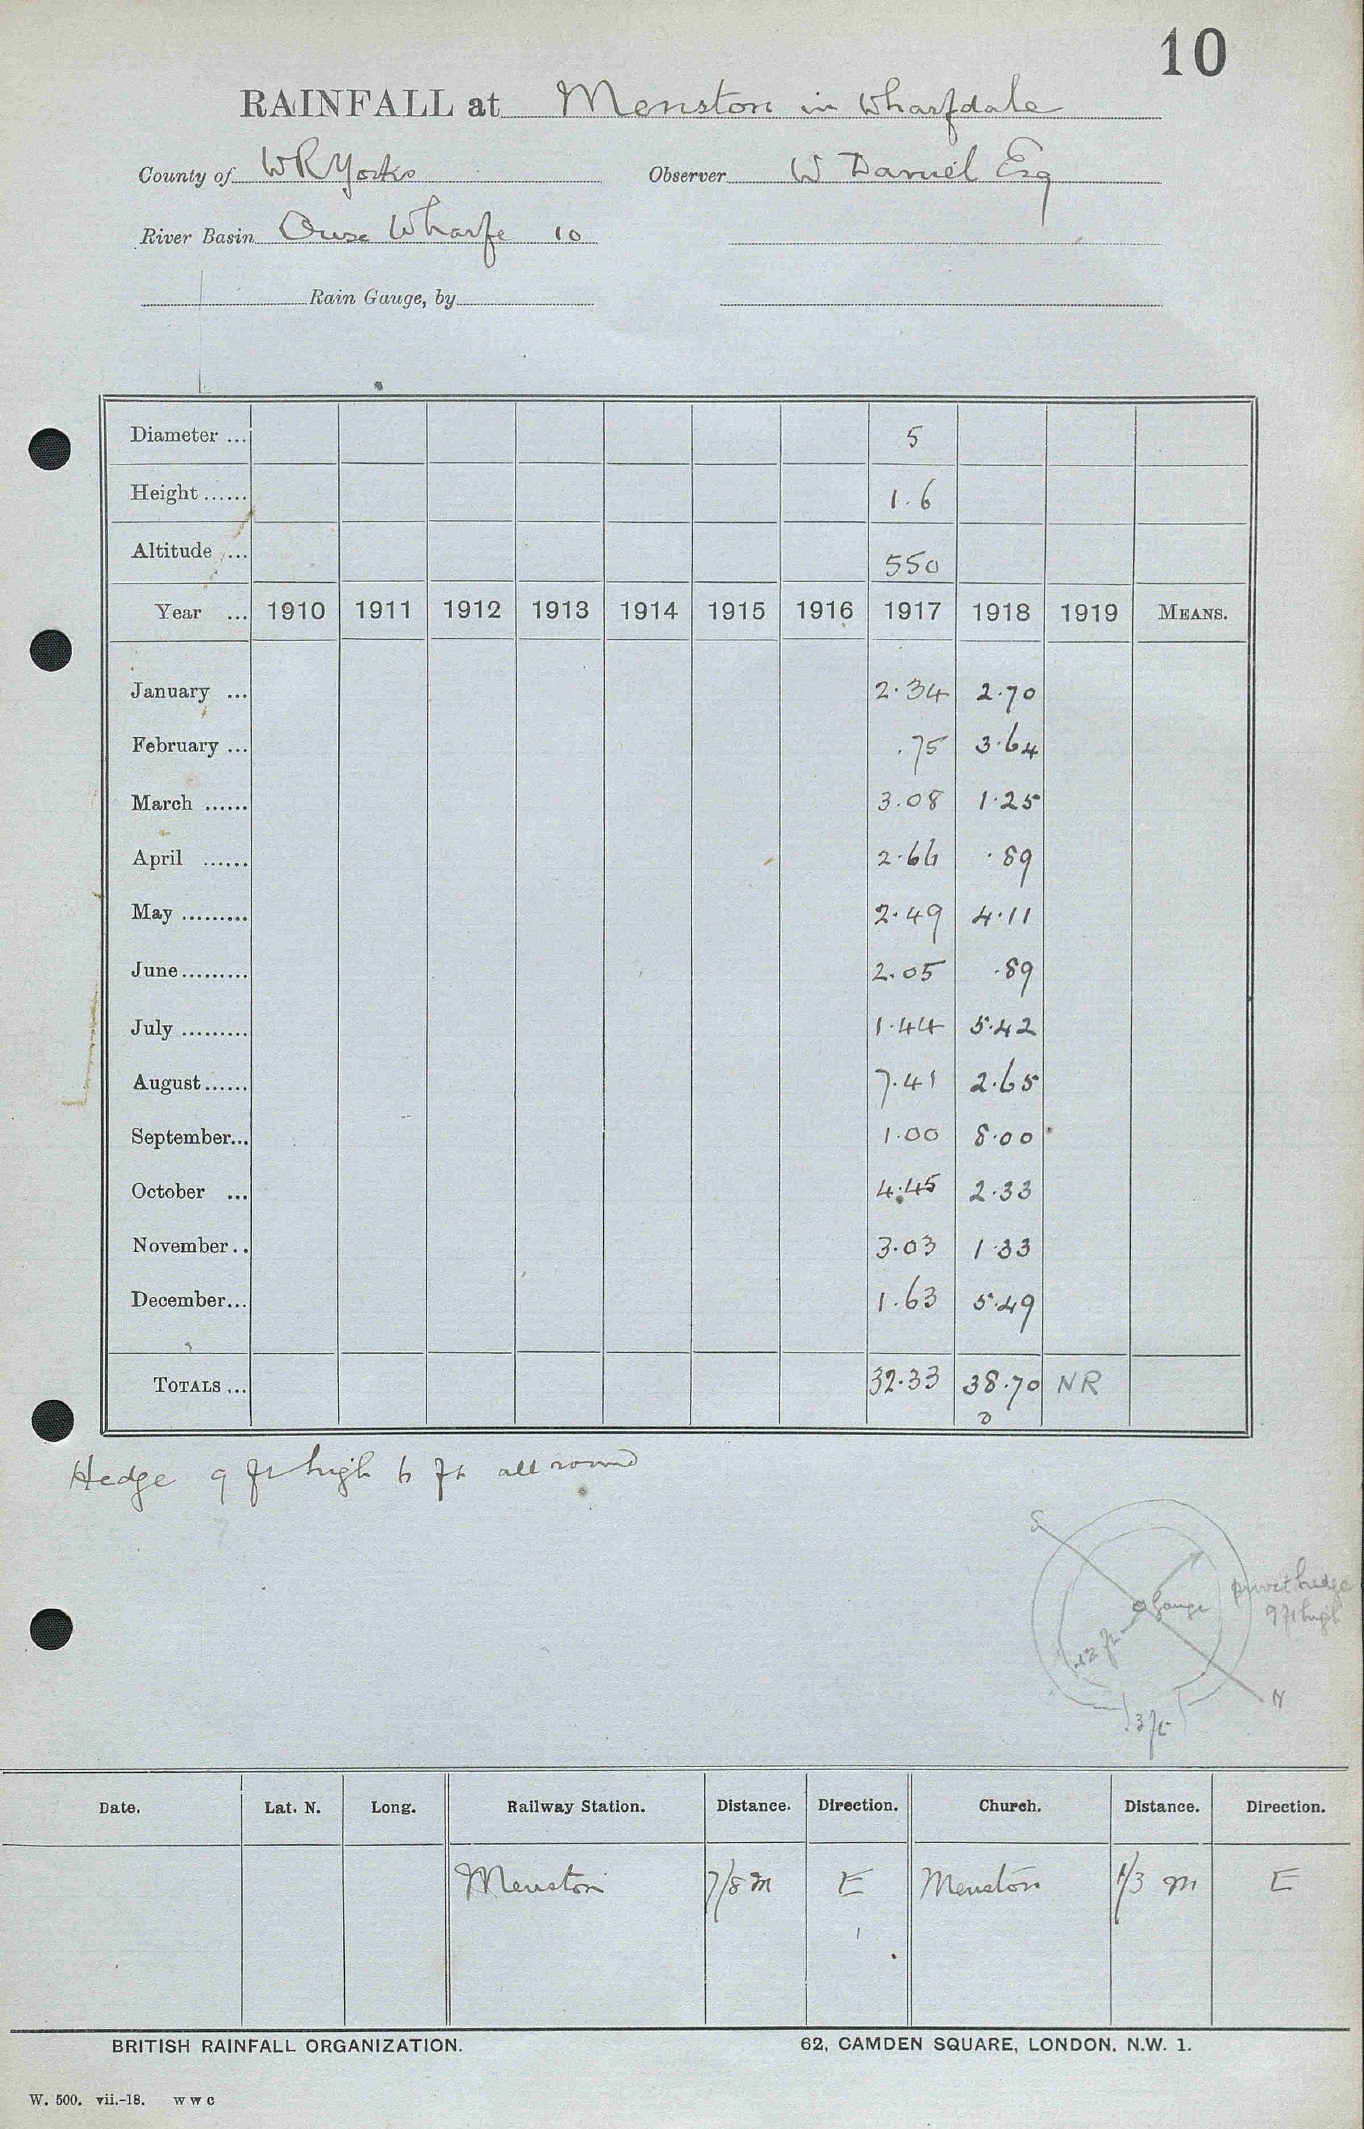 10
RAINFALL at Menston in Wharfdale
County of WR Yorks Observer W Daniel Esq
River Basin Ouse Wharfe 10
Rain Gauge, by
Diameter ... 5
Height ...... 1.6
Altitude ... 550
Year ... 1910 1911 1912 1913 1914 1915 1916 1917 1918 1919 MEANS.
January ... 2.34 2.70
February ... .75 3.64
March ...... 3.08 1.25
April ...... 2.66 .89
May ......... 2.49 4.11
June ......... 2.05 .89
July ......... 1.44 5.42
August ...... 7.41 2.65
September... 1.00 8.00
October ... 4.45 2.33
November .. 3.03 1.33
December... 1.63 5.49
TOTALS ... 32.33 38.70 NR
Hedge 9 ft high 6 ft all round
S
Gauge
privet hedge
9 ft high
12 ft
N
3 ft
Date. Lat. N. Long. Railway Station. Distance. Direction. Church. Distance. Direction.
Menston 7/8 m E Menston 1/3 m E
BRITISH RAINFALL ORGANIZATION. 62, CAMDEN SQUARE, LONDON, N.W. 1.
W. 500. vii.-18. W W C